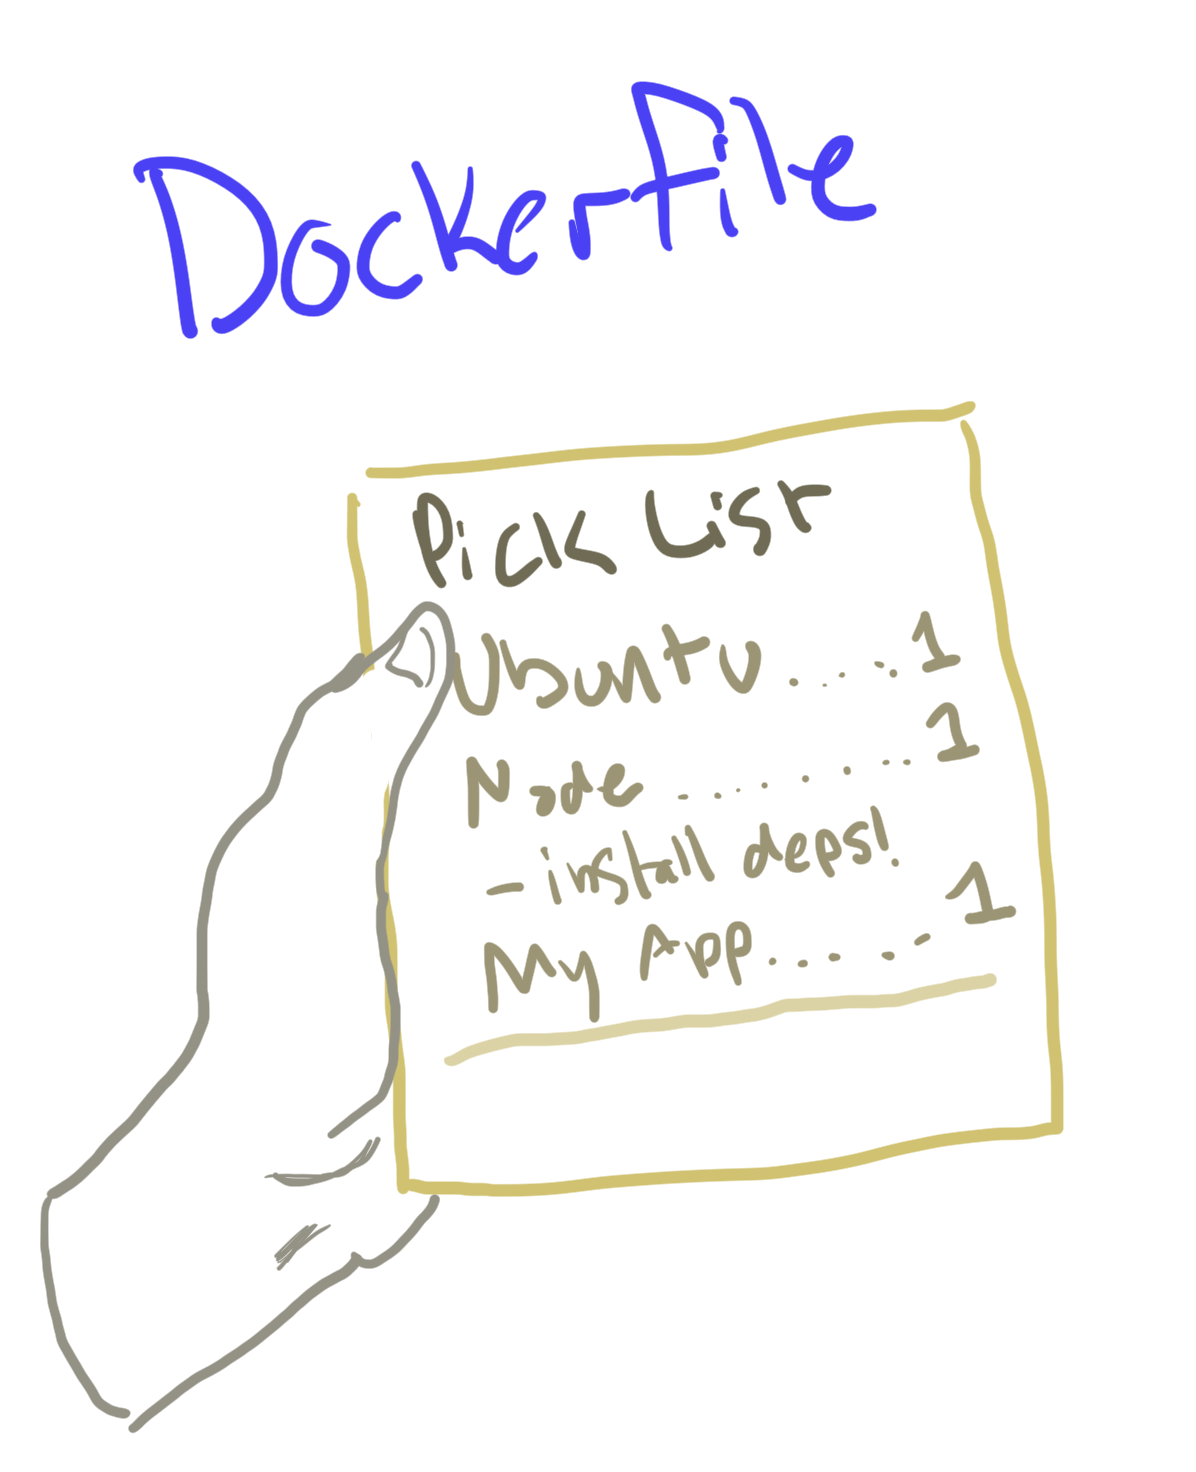 Dockerfile
Pick List
Ubuntu.....1
Node........1
- install deps!
My App.....1